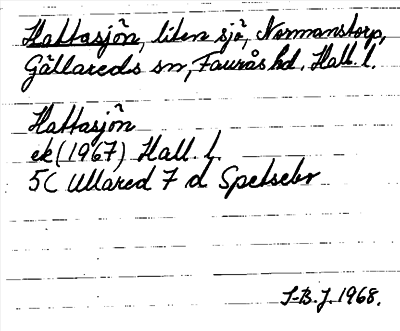 Hattasjön, liten sjö, Normanstorp,
Gällareds sn, Faurås hd. Hall. l.
Hattasjön
ek (1967) Hall. l.
5C Ullared 7 d
S-B.J. 1968.